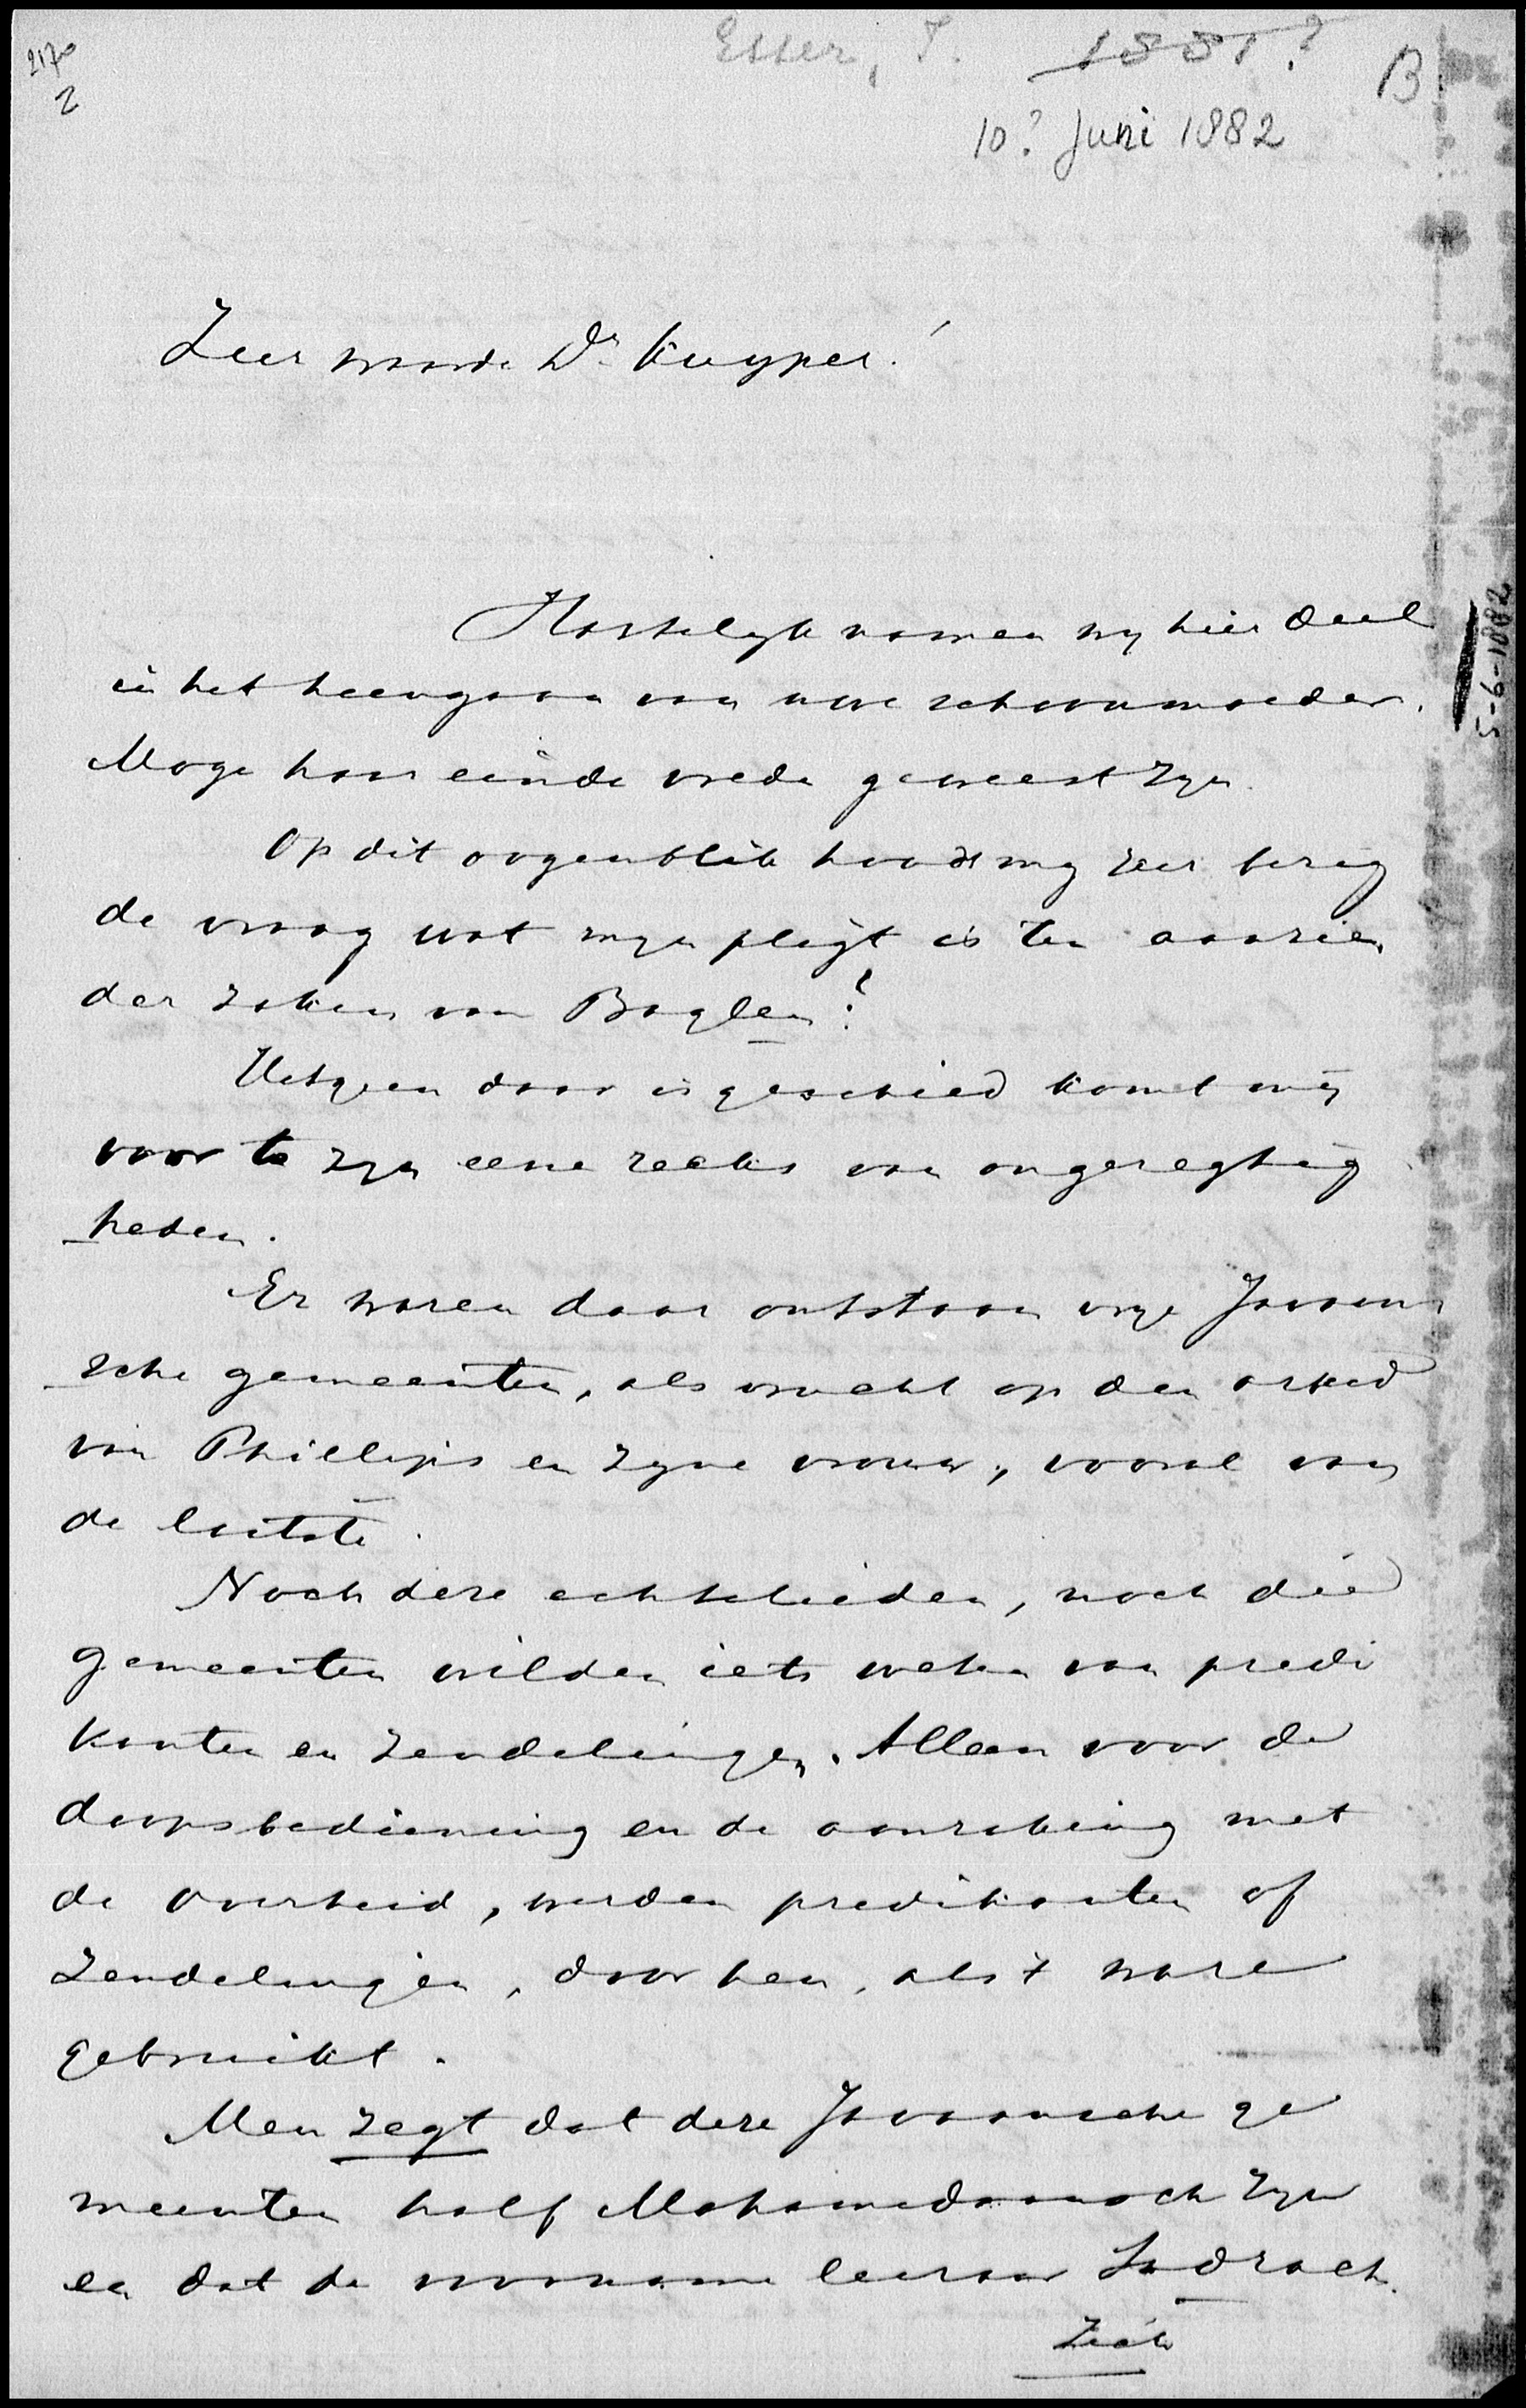 2170
2
Esser, I. 1881?
B
10? Juni 1882
5-6-1882
Zeer waarde Dr Kuyper!
Hartelyk namen wy hier deel
in het heengaan van uwe schoonmoeder.
Moge haar einde vrede geweest zyn.
Op dit oogenblik houdt my zeer bezig
de vraag wat myn pligt is ten aanzien
der zaken van Baglen?
Hetgeen daar is geschied komt my
voor te zyn eene reeks van ongeregtig
heden.
Er waren daar ontstaan vrye Javaan
sche gemeenten, als vrucht op den arbeid
van Phillips en zyne vrouw, vooral van
de laatste.
Noch deze echtelieden, noch die
gemeenten wilden iets weten van predi
kanten en zendelingen. Alleen voor de
doopsbediening en de aanraking met
de overheid, werden predikanten of
zendelingen, door hen, als 't ware
gebruikt.
Men zegt dat deze Javaansche ge
meenten half Mohamedaansch zyn
en dat de voorname leeraar Sadrach
zich